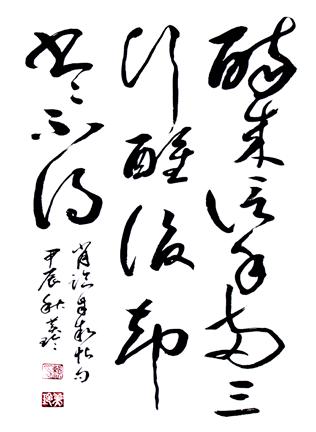 醉来信手两三
行醒后却
书书不得
肖讷自叙帖句
甲辰秋